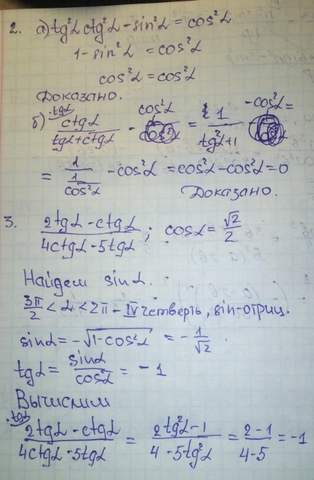 2. а) tg²α ctg²α - sin²α = cos²α
1 - sin²α = cos²α
cos²α = cos²α
Доказано.
б) ctgα ·tgα / tgα + ctgα - cos²α = 1 / tg²α + 1 - cos²α =
= 1 / 1/cos²α - cos²α = cos²α - cos²α = 0
Доказано.
3. 2tgα - ctgα / 4ctgα - 5tgα ; cosα = √2/2
Найдем sinα.
3π/2 < α < 2π - IV четверть, sin-отриц.
sinα = -√1-cos²α = - 1/√2 .
tgα = sinα / cos²α = -1
Вычислим
2tgα - ctgα ·tgα / 4ctgα - 5tgα = 2tg²α - 1 / 4 - 5tg²α = 2-1 / 4-5 = -1